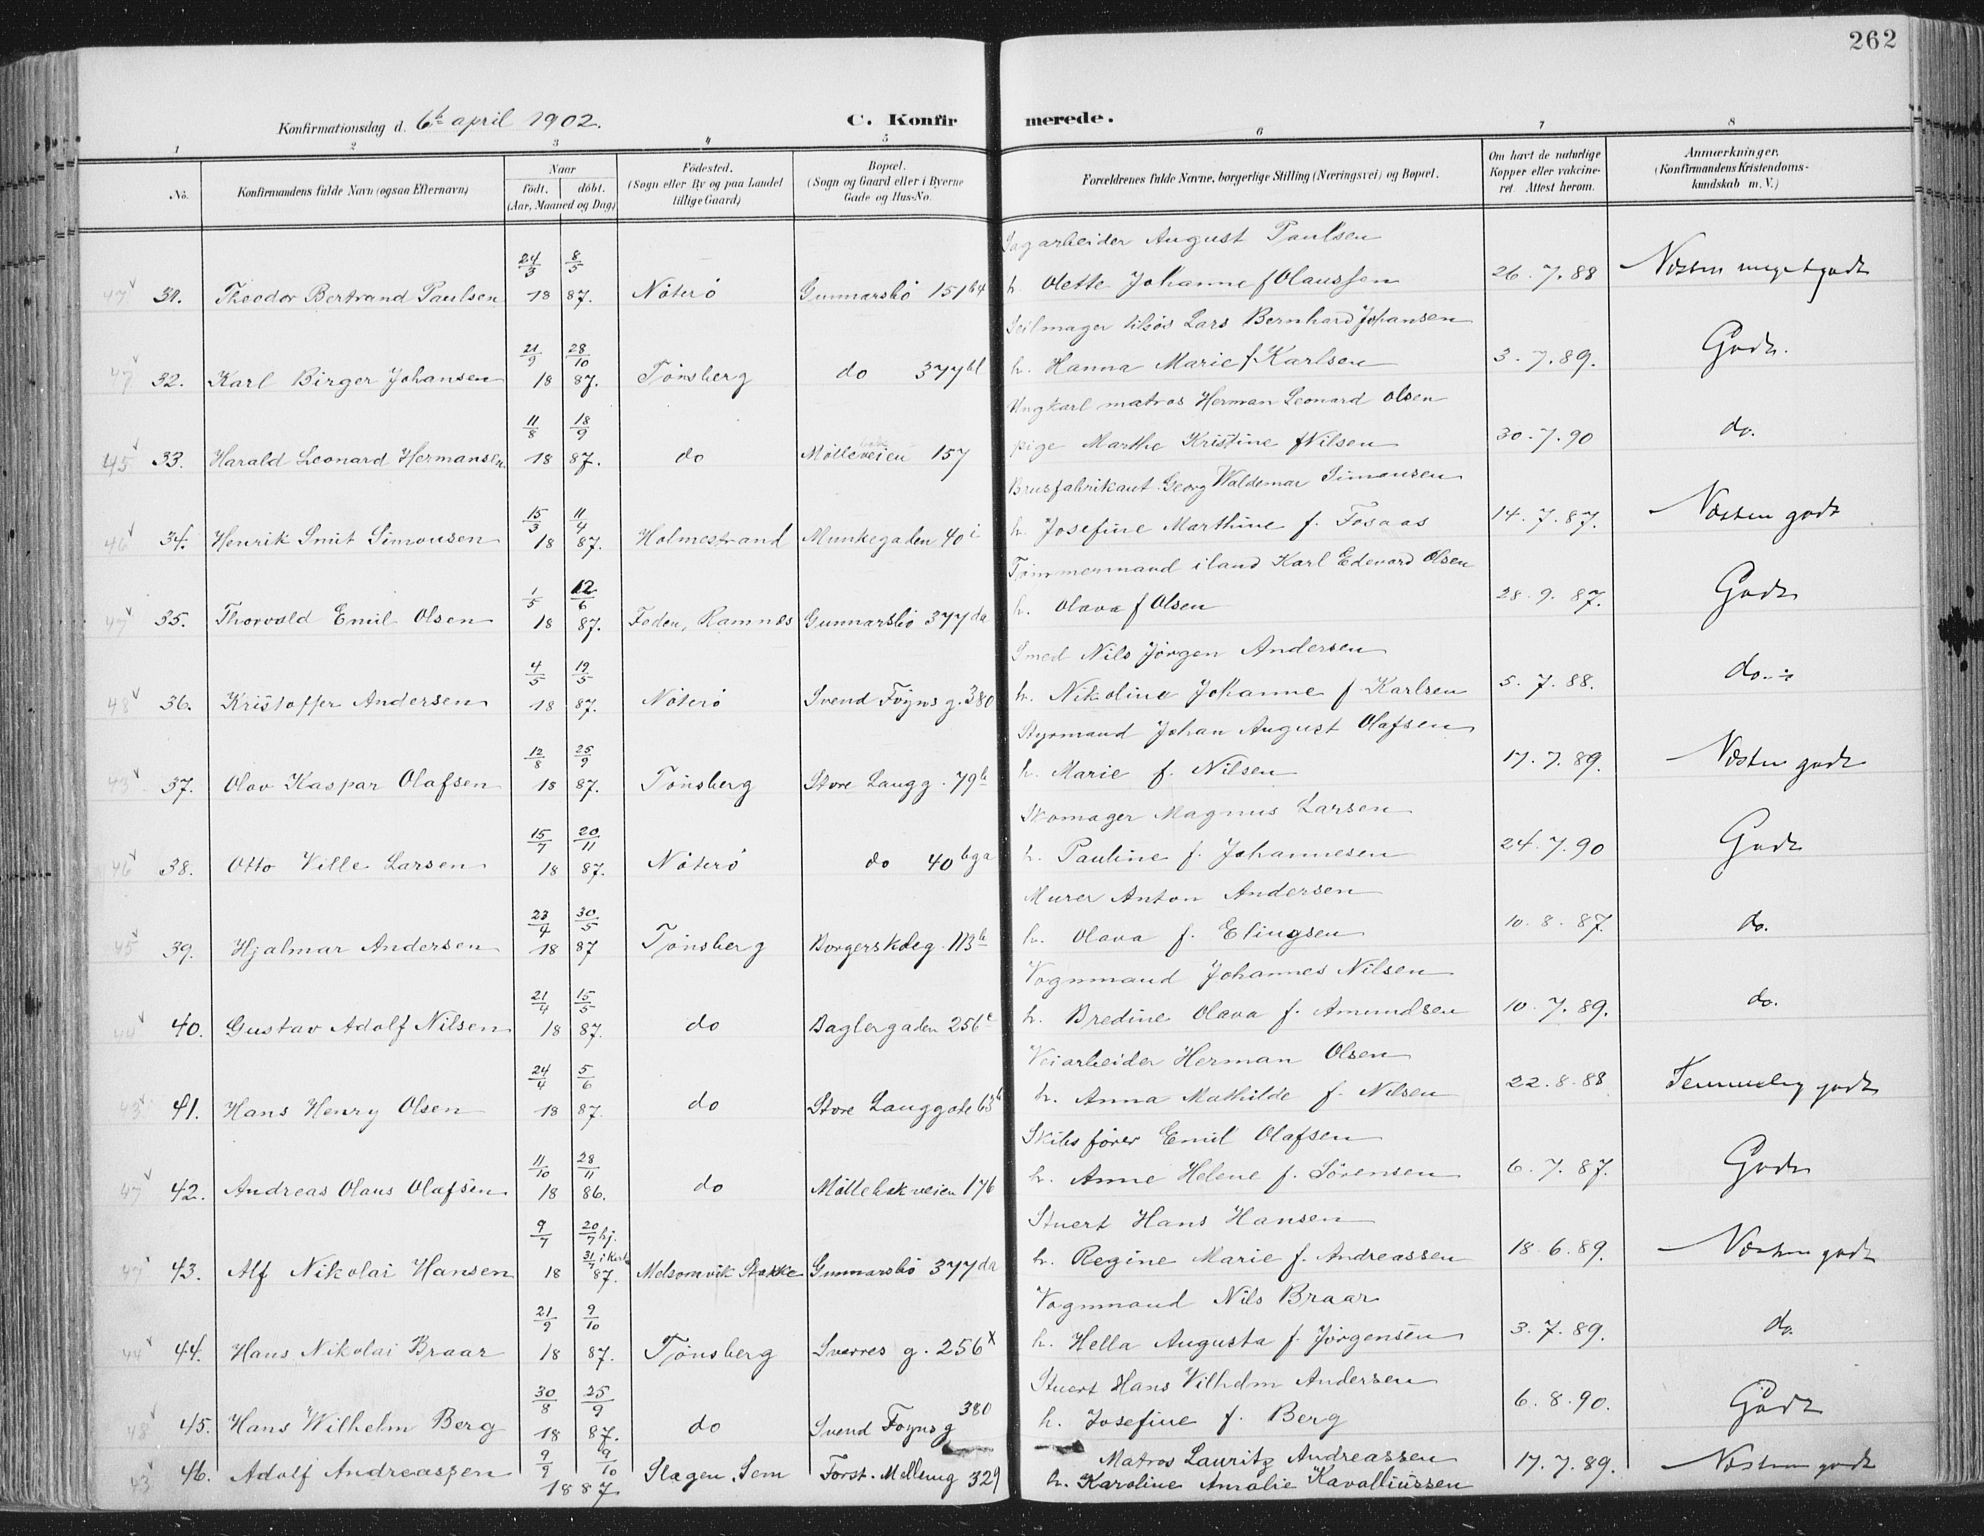 262
Konfirmationsdag d. 6te april 1902. C. Konfirmerede.
1 2 3 4 5 6 7 8
No. Konfirmandens fulde Navn (ogsaa Efternavn) Naar født. døbt. (Aar, Maaned og Dag) Fødested. (Sogn eller By og paa Landet tillige Gaard) Bopæl. (Sogn og Gaard eller i Byerne Gade og Hus-No. Forældrenes fulde Navne, borgerlige Stilling (Næringsvei) og Bopæl. Om havt de naturlige Kopper eller vakcineret. Attest herom. Anmærkninger. (Konfirmandens Kristendomskundskab m. V.)
Sagarbeider August Paulsen
31. Theodor Bertrand Paulsen 24/3 8/5 1887. Nøterø Gunnarsbø 151 b4 h. Olette Johanne f Olaussen 26.7.88 Næsten meget godt
Seilmager tilsøs Lars Bernhard Johansen
32. Karl Birger Johansen 21/9 28/10 1887. Tønsberg do 377 bl h. Hanna Marie f Karlsen 3.7.89. Godt.
Ungkarl matros Herman Leonard Olsen
33. Harald Leonard Hermansen 11/8 18/9 1887. do Mølleveien 157 pige Marthe Kristine f Nilsen 30.7.90 do.
Brusfabrikant Georg Waldemar Simonsen
34. Henrik Smit Simonsen 15/3 11/4 1887. Holmestrand Munkegaden 40 i h. Josefine Marthine f. Fosaas 14.7.87. Næsten godt
Tømmermand iland Karl Edevard Olsen
35. Thorvald Emil Olsen 1/5 12/6 1887. Foden, Ramnes Gunnarsbø 377 da h. Olava f Olsen 28.9.87. Godt
Smed Nils Jørgen Andersen
36. Kristoffer Andersen 4/5 19/5 1887. Nøterø Svend Foyns g. 380 h. Nikoline Johanne f Karlsen 5.7.88. do.
Styrmand Johan August Olafsen
37. Olav Kaspar Olafsen 12/8 25/9 1887. Tønsberg Store Langg. 79 b h. Marie f. Nilsen 17.7.89. Næsten godt
Skomager Magnus Larsen
38. Otto Ville Larsen 15/7 20/11 1887. Nøterø do 40 bga h. Pauline f. Johannesen 24.7.90 Godt
Murer Anton Andersen
39. Hjalmar Andersen 23/4 30/5 1887 Tønsberg Borgerskoleg. 113 b h. Olava f. Elingsen 10.8.87. do.
Vognmand Johannes Nilsen
40. Gustav Adolf Nilsen 21/4 15/5 1887. do Baglergaden 256 c h. Bredine Olava f. Amundsen 10.7.89. do.
Veiarbeider Herman Olsen
41. Hans Henry Olsen 24/4 5/6 1887. do Store Langgate 63 b h. Anna Mathilde f. Nilsen 22.8.88 Temmelig godt
Skibsfører Emil Olafsen
42. Andreas Olaus Olafsen 11/10 28/11 1886. do Møllebakveien 176 h. Anne Helene f. Sørensen 6.7.87. Godt
Stuert Hans Hansen
43. Alf Nikolai Hansen 9/7 20/7 hj. 31/7 i Kirk 1887. Melsomvik Stokke Gunnarsbø 377 da h. Regine Marie f. Andreassen 18.6.89. Næsten godt
Vognmand Nils Braar
44. Hans Nikolai Braar 21/9 9/10 1887. Tønsberg Sverres g. 256 x h. Hella Augusta f. Jørgensen 3.7.89. do.
Stuert Hans Vilhelm Andersen
45. Hans Wilhelm Berg 30/8 25/9 1887. do Svend Foyns g 380 h. Josefine f. Berg 6.8.90. Godt
Matros Lauritz Andreassen
46. Adolf Andreassen 9/9 9/10 1887 Slagen, Sem Forst. Mellemg 329 h. Karoline Amalie Kavalliussen 17.7.89. Næsten godt